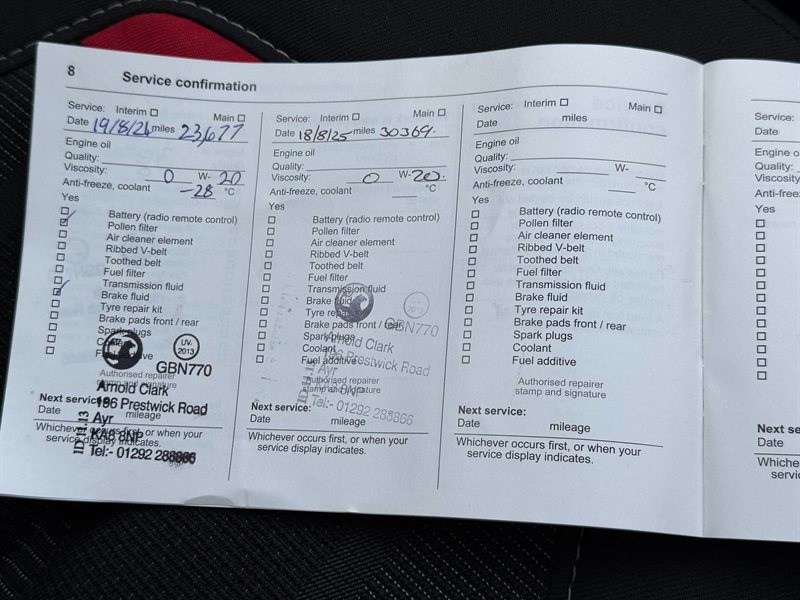 8 Service confirmation
Service: Interim ☐ Main ☐
Date 19/8/24 miles 23,677
Engine oil
Quality:
Viscosity: 0 W- 20
Anti-freeze, coolant -28 °C
Yes
Battery (radio remote control)
Pollen filter
Air cleaner element
Ribbed V-belt
Toothed belt
Fuel filter
Transmission fluid
Brake fluid
Tyre repair kit
Brake pads front / rear
Spark plugs
UV-
2013
GBN770
Authorised repairer
stamp and signature
Arnold Clark
196 Prestwick Road
Ayr
KA8 8NP
Tel:- 01292 288866
ID 11.13
Next service:
Date mileage
Whichever occurs first, or when your
service display indicates.
Service: Interim ☐ Main ☐
Date 18/8/25 miles 30369.
Engine oil
Quality:
Viscosity: 0 W- 20.
Anti-freeze, coolant °C
Yes
Battery (radio remote control)
Pollen filter
Air cleaner element
Ribbed V-belt
Toothed belt
Fuel filter
Transmission fluid
Brake fluid
Tyre repair kit
Brake pads front / rear
Spark plugs
Coolant
Fuel additive
2013
GBN770
Authorised repairer
stamp and signature
Arnold Clark
196 Prestwick Road
Ayr
8NP
Tel:- 01292 288866
ID 11.13
Next service:
Date mileage
Whichever occurs first, or when your
service display indicates.
Service: Interim ☐ Main ☐
Date miles
Engine oil
Quality:
Viscosity: W-
Anti-freeze, coolant °C
Yes
Battery (radio remote control)
Pollen filter
Air cleaner element
Ribbed V-belt
Toothed belt
Fuel filter
Transmission fluid
Brake fluid
Tyre repair kit
Brake pads front / rear
Spark plugs
Coolant
Fuel additive
Authorised repairer
stamp and signature
Next service:
Date mileage
Whichever occurs first, or when your
service display indicates.
Service:
Date
Engine o
Quality:
Viscosity
Anti-free
Yes
Next se
Date
Whiche
servi